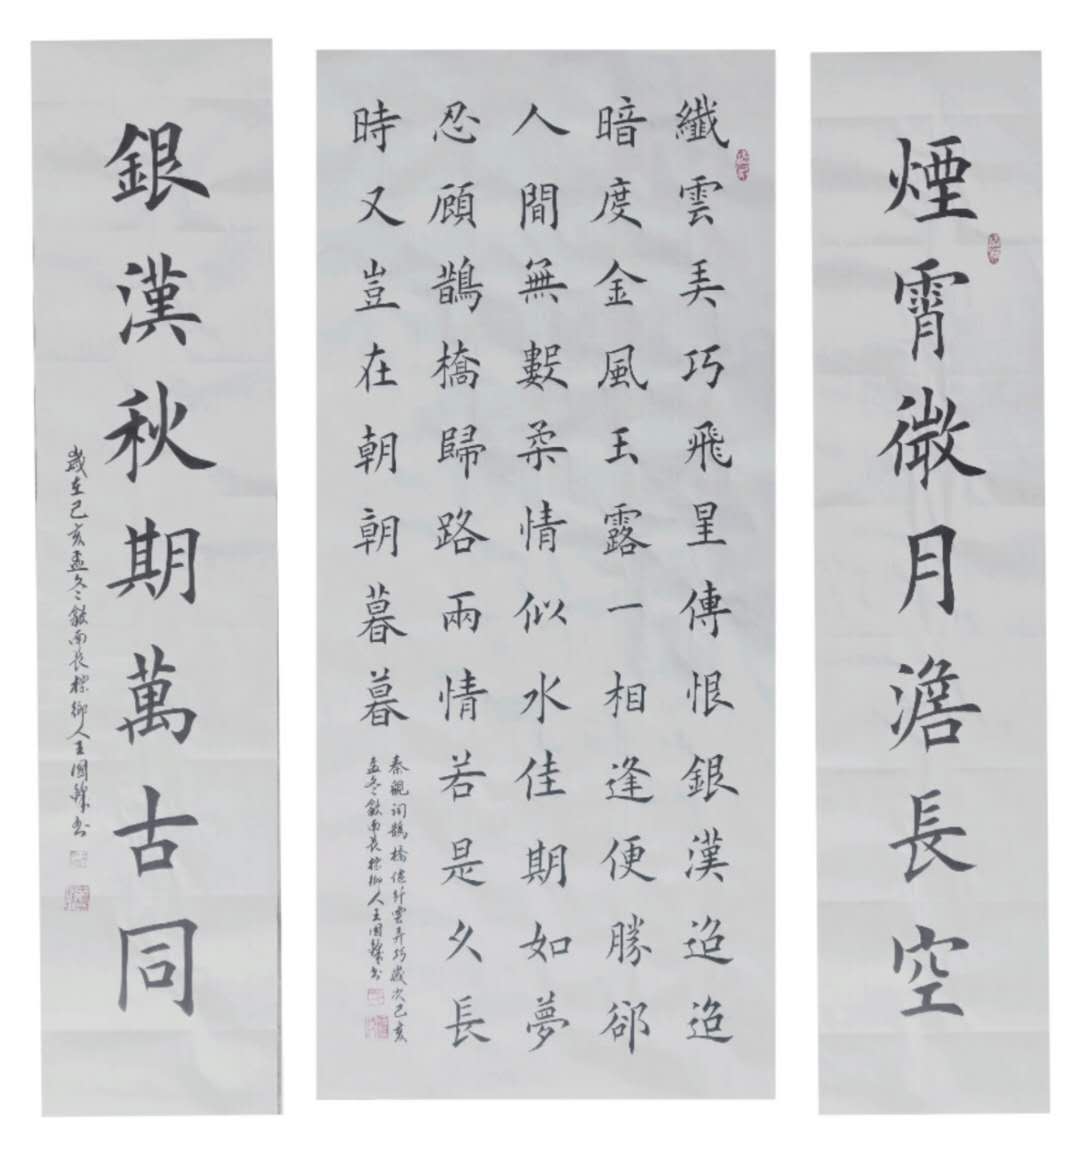 煙霄微月澹長空
纖雲弄巧飛星傳恨銀漢迢迢
暗度金風玉露一相逢便勝郤
人間無數柔情似水佳期如夢
忍顧鵲橋歸路兩情若是久長
時又豈在朝朝暮暮
秦觀詞鵲橋仙纤雲弄巧歲次己亥
孟冬歙南長標鄉人王國書
銀漢秋期萬古同
歲在己亥孟冬歙南長標鄉人王國書